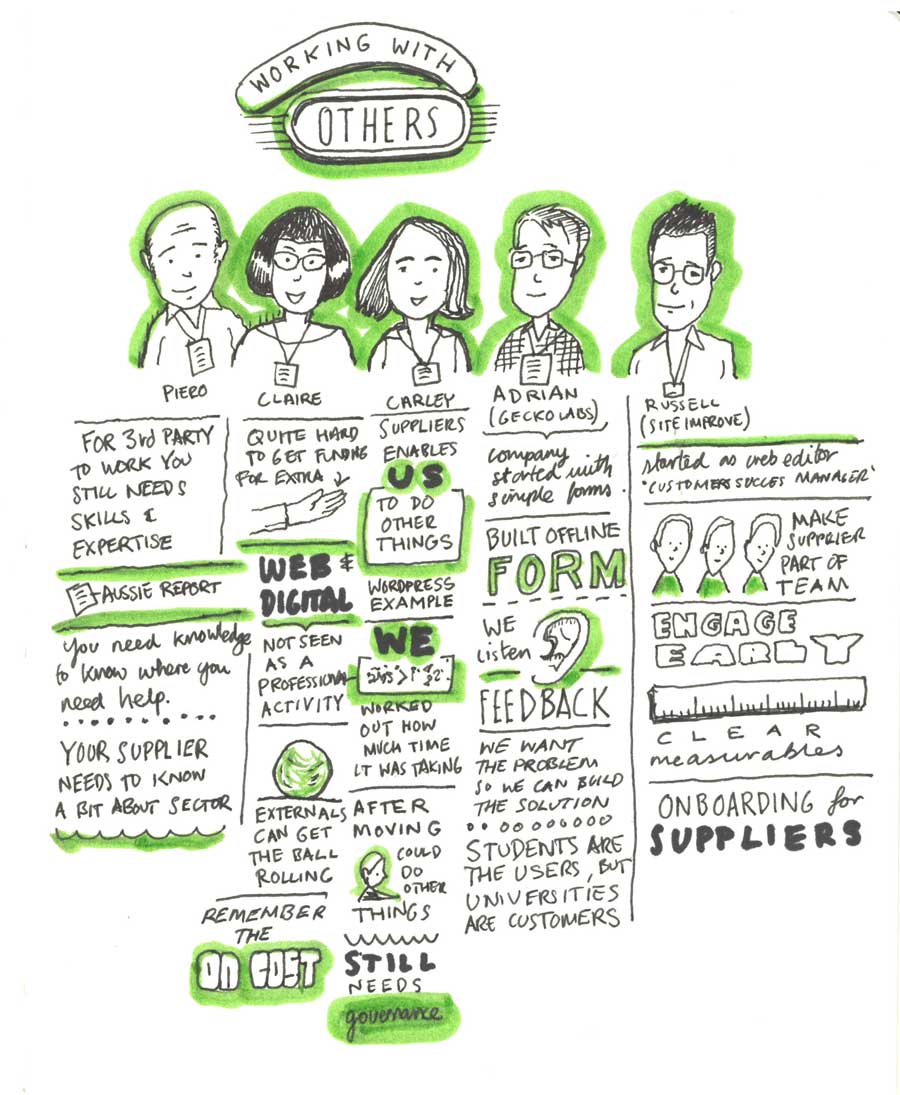 WORKING WITH
OTHERS
PIERO
FOR 3rd PARTY
TO WORK YOU
STILL NEEDS
SKILLS &
EXPERTISE
AUSSIE REPORT
You need knowledge
to know where you
need help.
YOUR SUPPLIER
NEEDS TO KNOW
A BIT ABOUT SECTOR
CLAIRE
QUITE HARD
TO GET FUNDING
FOR EXTRA
WEB &
DIGITAL
NOT SEEN
AS A
PROFESSIONAL
ACTIVITY
EXTERNALS
CAN GET
THE BALL
ROLLING
REMEMBER
THE
ON COST
CARLEY
SUPPLIERS
ENABLES
US
TO DO
OTHER
THINGS
WORDPRESS
EXAMPLE
WE
WORKED
OUT HOW
MUCH TIME
IT WAS TAKING
AFTER
MOVING
COULD
DO
OTHER
THINGS
STILL
NEEDS
governance
ADRIAN
(GECKO LABS)
company
started with
simple forms.
BUILT OFFLINE
FORM
WE
Listen
FEEDBACK
WE WANT
THE PROBLEM
SO WE CAN BUILD
THE SOLUTION
STUDENTS ARE
THE USERS, BUT
UNIVERSITIES
ARE CUSTOMERS
RUSSELL
(SITE IMPROVE)
started as web editor
'CUSTOMER SUCCES MANAGER'
MAKE
SUPPLIER
PART OF
TEAM
ENGAGE
EARLY
CLEAR
measurables
ONBOARDING for
SUPPLIERS